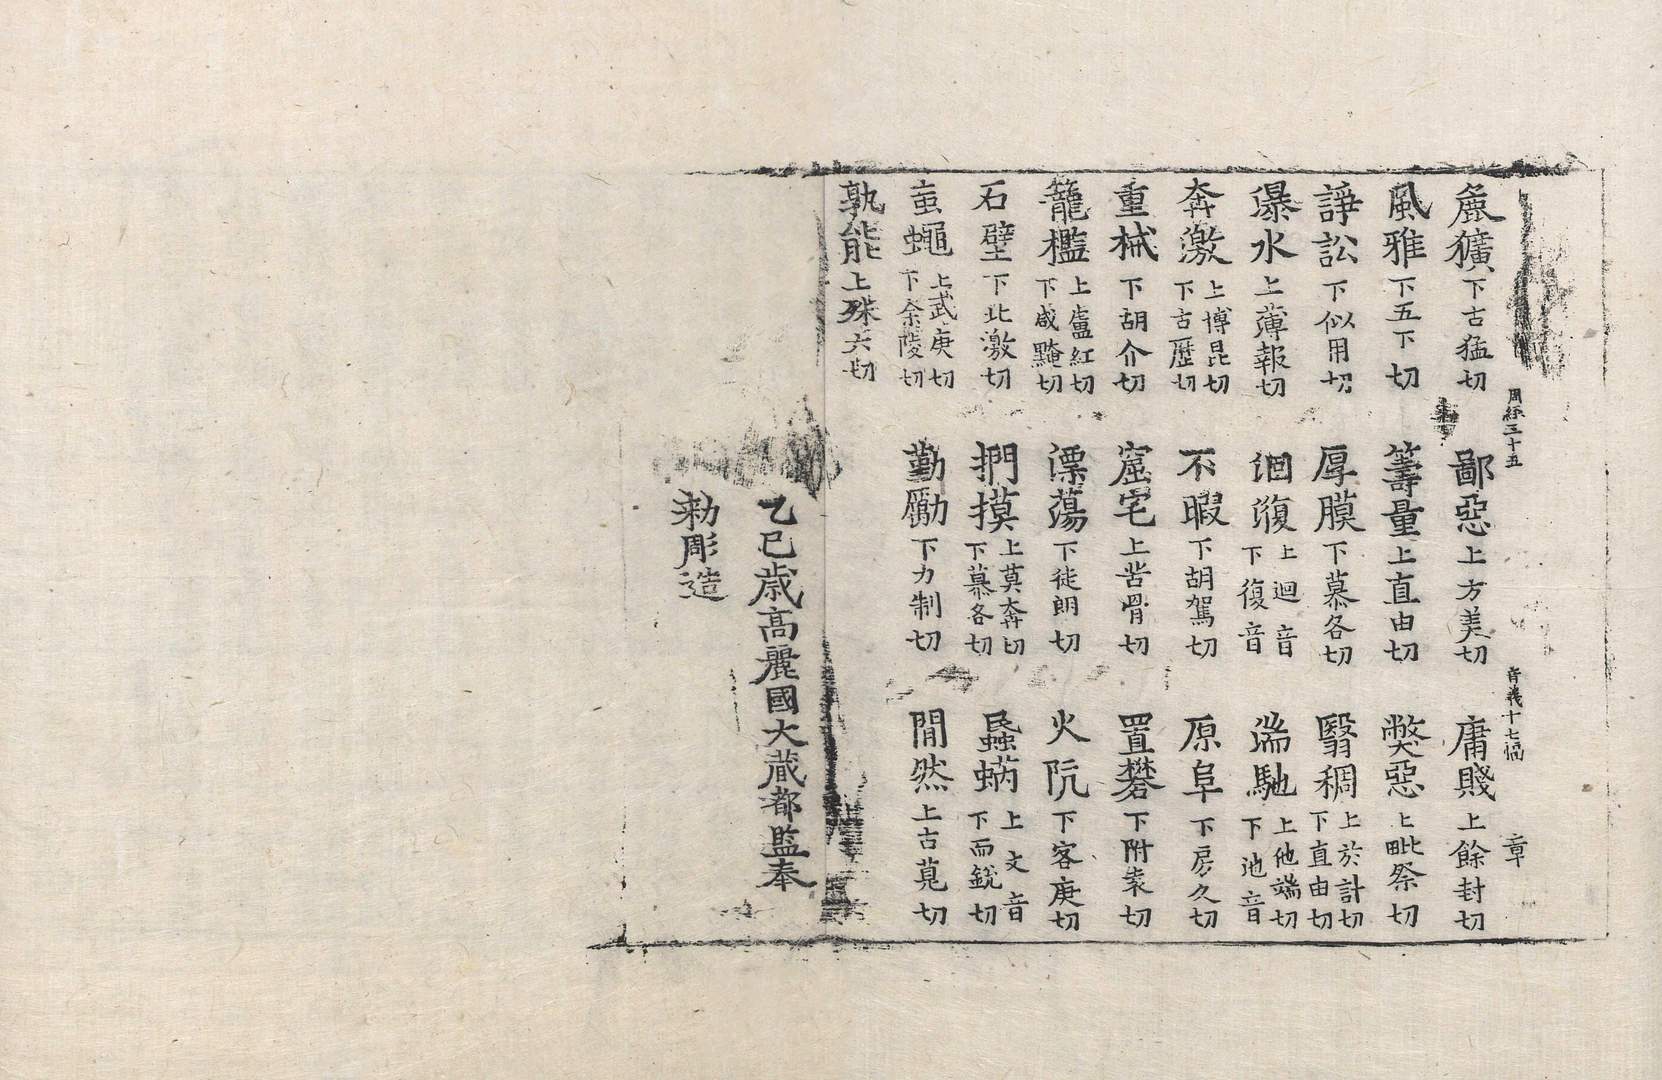 周經三十五 音義十七幅 章
麁獷下古猛切 鄙惡上方美切 庸賤上餘封切
風雅下五下切 籌量上直由切 獘惡上毗祭切
諍訟下似用切 厚膜下慕各切 翳稠上於計切下直由切
瀑水上薄報切 洄澓上迴音下復音 湍馳上他端切下池音
奔激上博昆切下古歷切 不暇下胡駕切 原阜下房久切
重械下胡介切 窟宅上苦骨切 罝礬下附袁切
籠檻上盧紅切下咸黤切 漂蕩下徒朗切 火阬下客庚切
石壁下北激切 捫摸上莫奔切下慕各切 蟁蜹上文音下而銳切
蝱蠅上武庚切下余陵切 勤勵下力制切 閒然上古莧切
孰能上殊六切
乙巳歲高麗國大藏都監奉
勑彫造